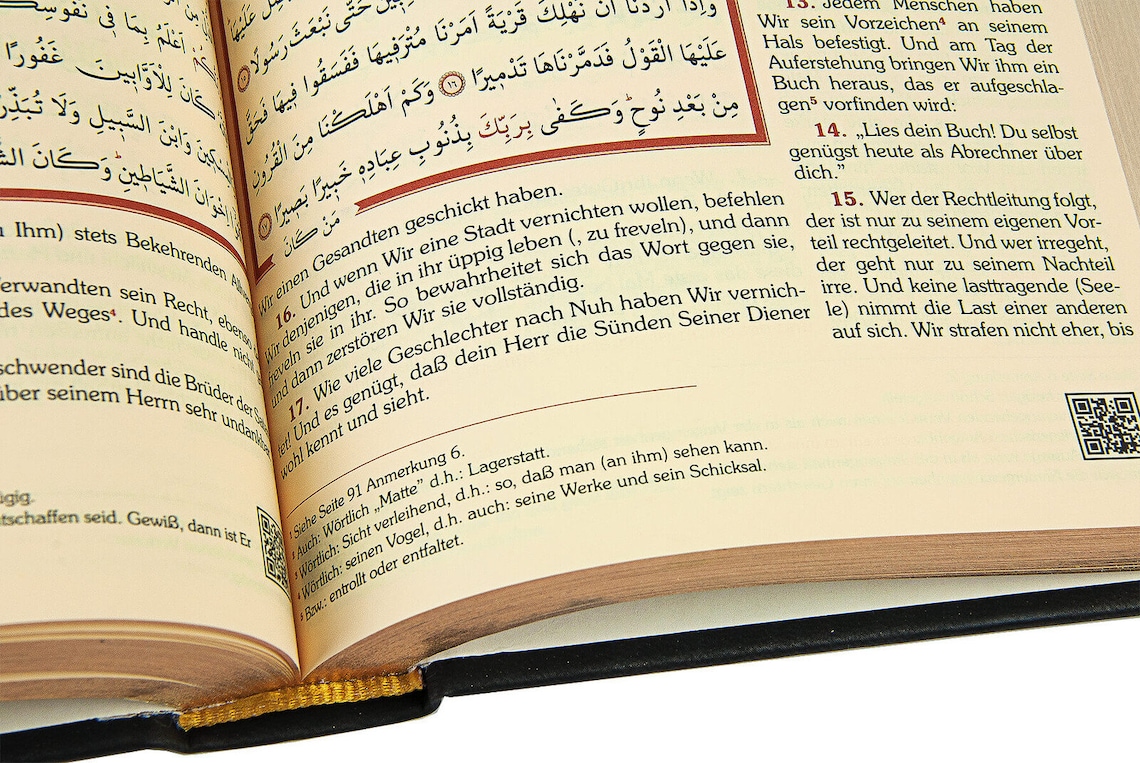 نُفُوسِكُمْ
اَعْلَمُ بِمَا فٖى
كَانَ لِلْاَوَّابٖينَ غَفُورًا
وَابْنَ السَّبٖيلِ وَلَا تُبَذِّرْ
اِخْوَانَ الشَّيَاطٖينِ وَكَانَ
Ihm) stets Bekehrenden
erwandten sein Recht, ebenso
des Weges⁴. Und handle nicht
schwender sind die Brüder der
über seinem Herrn sehr undankbar
gig.
tschaffen seid. Gewiß, dann ist Er
حَتّٰى نَبْعَثَ رَسُولًا ١٥
وَاِذَا اَرَدْنَا اَنْ نُهْلِكَ قَرْيَةً اَمَرْنَا مُتْرَفٖيهَا فَفَسَقُوا فٖيهَا فَحَقَّ
عَلَيْهَا الْقَوْلُ فَدَمَّرْنَاهَا تَدْمٖيرًا ١٦ وَكَمْ اَهْلَكْنَا مِنَ الْقُرُونِ
مِنْ بَعْدِ نُوحٍ وَكَفٰى بِرَبِّكَ بِذُنُوبِ عِبَادِهٖ خَبٖيرًا بَصٖيرًا ١٧
مَنْ كَانَ
Wir einen Gesandten geschickt haben.
16. Und wenn Wir eine Stadt vernichten wollen, befehlen
Wir denjenigen, die in ihr üppig leben (, zu freveln), und dann
freveln sie in ihr. So bewahrheitet sich das Wort gegen sie,
und dann zerstören Wir sie vollständig.
17. Wie viele Geschlechter nach Nuh haben Wir vernich-
tet! Und es genügt, daß dein Herr die Sünden Seiner Diener
wohl kennt und sieht.
13. Jedem Menschen haben
Wir sein Vorzeichen⁴ an seinem
Hals befestigt. Und am Tag der
Auferstehung bringen Wir ihm ein
Buch heraus, das er aufgeschla-
gen⁵ vorfinden wird:
14. „Lies dein Buch! Du selbst
genügst heute als Abrechner über
dich.”
15. Wer der Rechtleitung folgt,
der ist nur zu seinem eigenen Vor-
teil rechtgeleitet. Und wer irregeht,
der geht nur zu seinem Nachteil
irre. Und keine lasttragende (See-
le) nimmt die Last einer anderen
auf sich. Wir strafen nicht eher, bis
¹ Siehe Seite 91 Anmerkung 6.
² Auch: Wörtlich „Matte” d.h.: Lagerstatt.
³ Wörtlich: Sicht verleihend, d.h.: so, daß man (an ihm) sehen kann.
⁴ Wörtlich: seinen Vogel, d.h. auch: seine Werke und sein Schicksal.
⁵ Bzw.: entrollt oder entfaltet.